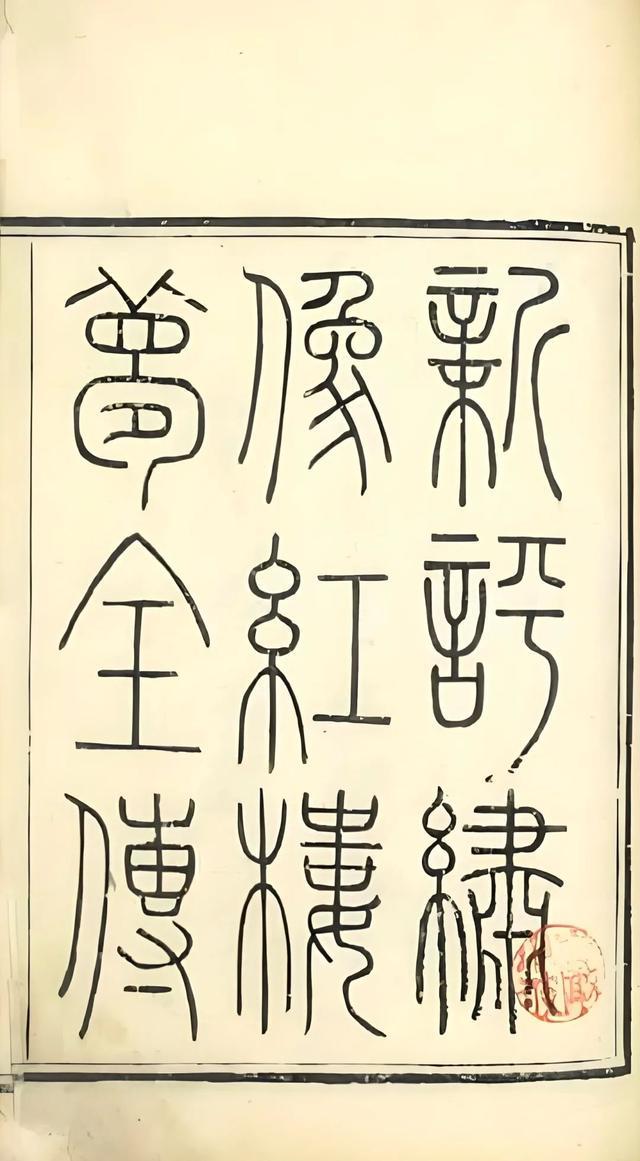 新評繡
像紅樓
夢全傳